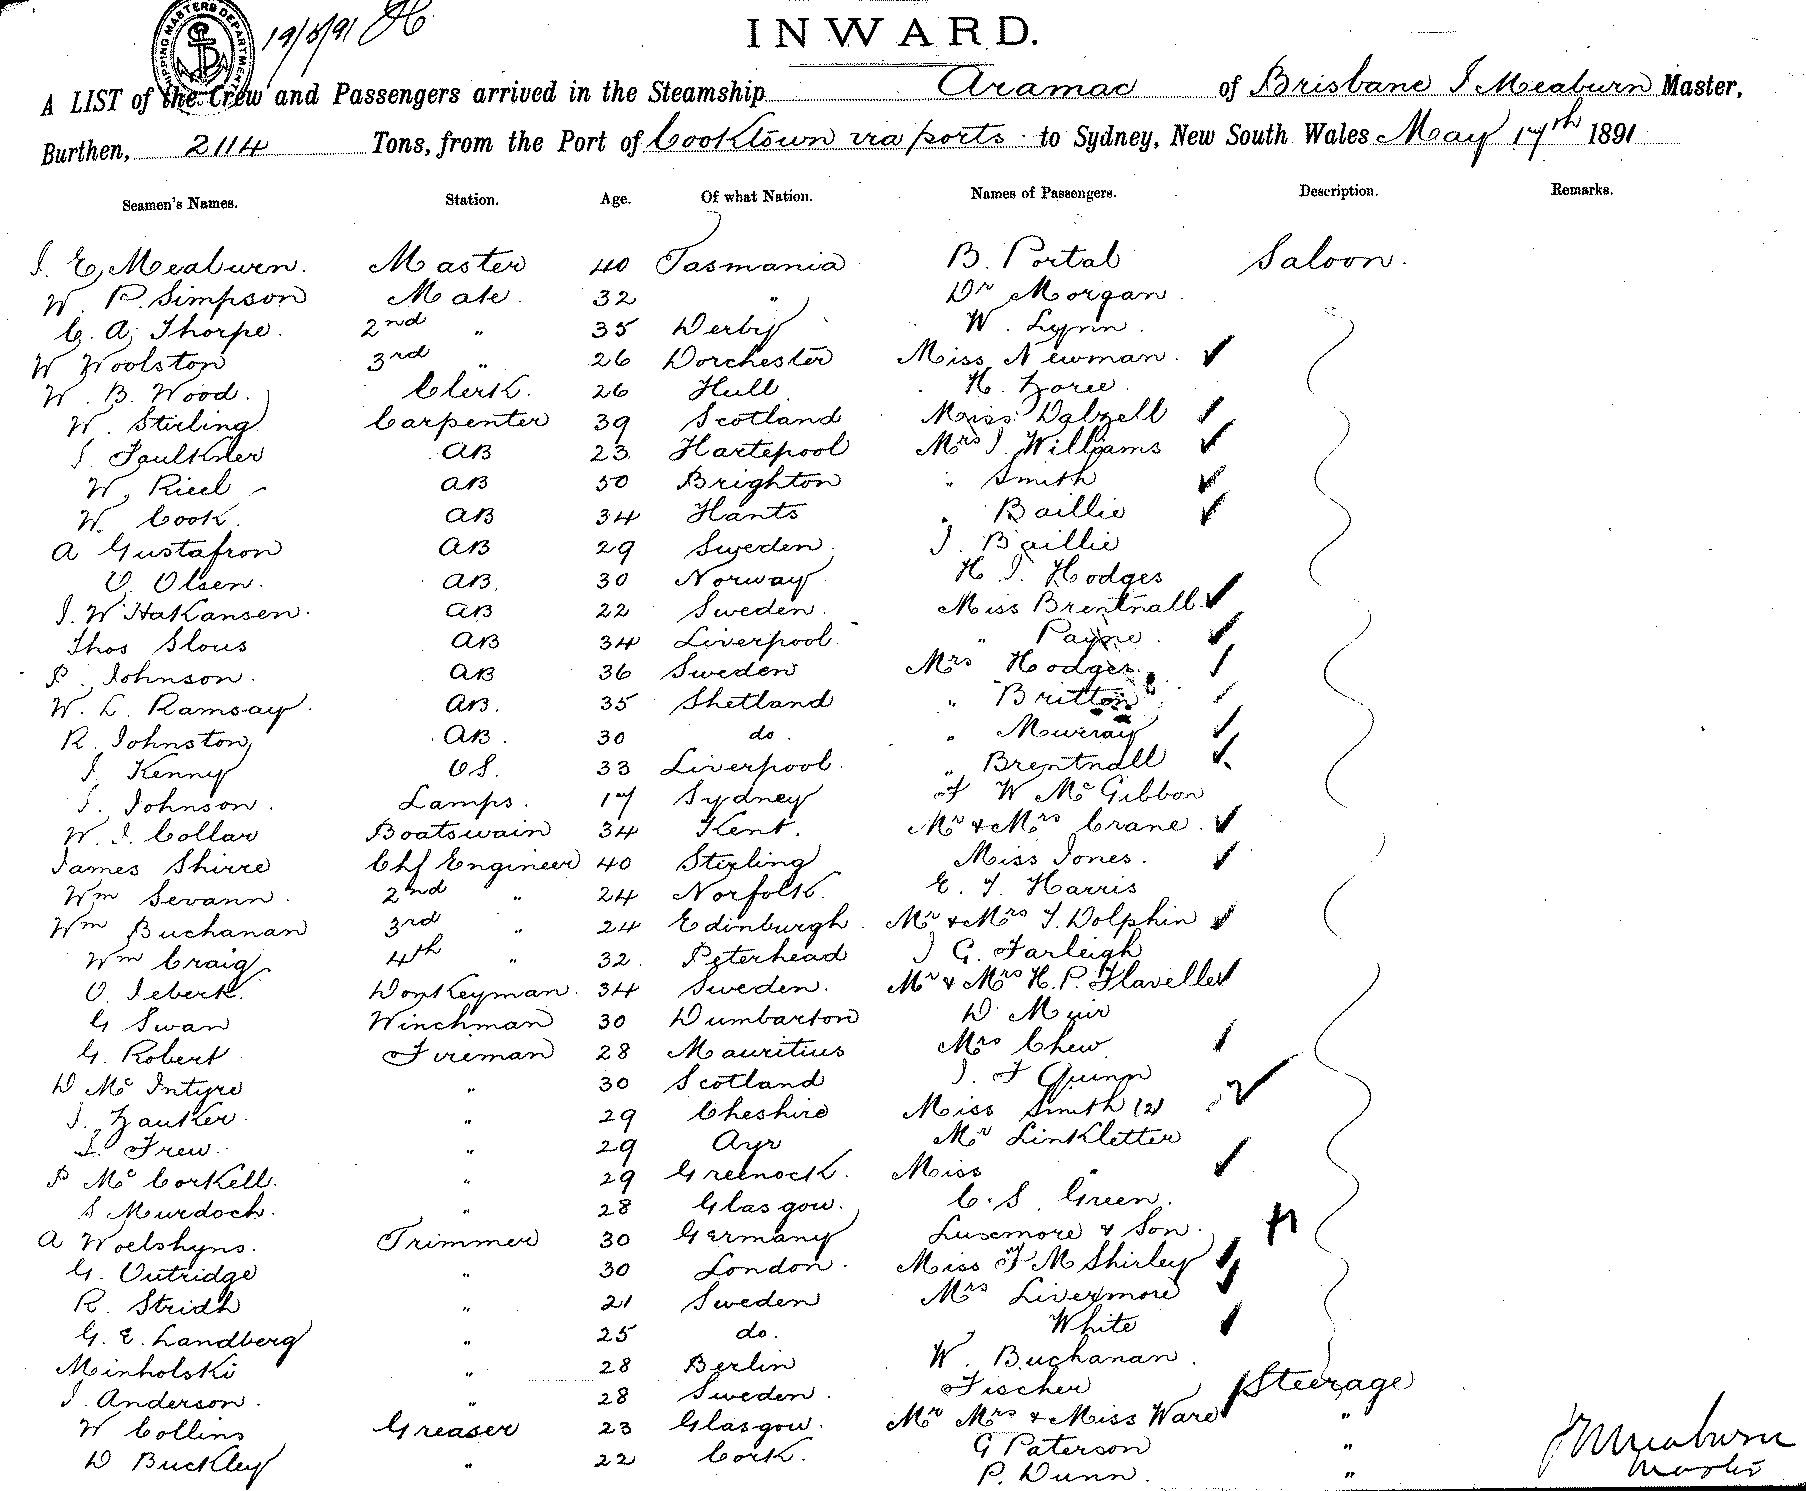 SHIPPING MASTERS DEPARTMENT
19/5/91
INWARD.
A LIST of the Crew and Passengers arrived in the Steamship Aramac of Brisbane J Meaburn Master,
Burthen, 2114 Tons, from the Port of Cooktown via ports to Sydney, New South Wales May 17th 1891
Seamen's Names. Station. Age. Of what Nation. Names of Passengers. Description. Remarks.
J. E. Meaburn. Master 40 Tasmania B. Portal Saloon.
W. P. Simpson Mate. 32 " Dr Morgan.
C. A. Thorpe. 2nd " 35 Derby W. Lynn.
W Woolston 3rd " 26 Dorchester Miss Newman.
W. B. Wood. Clerk. 26 Hull H.
W. Stirling Carpenter 39 Scotland Miss Dalzell
J. Faulkner AB 23 Hartepool Mrs J. Williams
W. AB 50 Brighton " Smith
W. Cook. AB 34 Hants " Baillie
A Gustafson AB 29 Sweden J. Baillie
O. Olsen. AB. 30 Norway H. J. Hodges
J. W Hakansen. AB 22 Sweden. Miss Brentnall
Thos Slous AB 34 Liverpool " Payne.
P. Johnson. AB 36 Sweden Mrs Hodges
W. L. Ramsay. AB. 35 Shetland " Britton
R. Johnston AB. 30 do. " Murray
J. Kenny OS. 33 Liverpool. " Brentnall
J. Johnson. Lamps. 17 Sydney F W McGibbon
W. J. Collar Boatswain 34 Kent. Mr & Mrs Crane.
James Shirre Chf Engineer 40 Stirling Miss Jones.
Wm Sevann. 2nd " 24 Norfolk. E. J. Harris
Wm Buchanan 3rd " 24 Edinburgh. Mr & Mrs J. Dolphin
Wm Craig. 4th " 32. Peterhead J G. Farleigh
O. Donkeyman. 34 Sweden. Mr & Mrs H. P. Flavelle
G Swan Winchman 30 Dumbarton D Muir
G. Robert Fireman 28 Mauritius Mrs Chew
D McIntyre " 30 Scotland J. F Quinn
J. " 29 Cheshire Miss Smith (2)
J. Frew. " 29 Ayr Mr Linkletter
P McCorkell. " 29 Greenock. Miss "
S Murdoch. " 28 Glasgow. C. S. Green.
A Woelshyns. Trimmer 30 Germany Luxmore & Son.
G. Outridge " 30 London. Miss F M Shirley
R. Stridh " 21 Sweden Mrs Livermore
G. E. Landberg " 25 do. " White
Minholski " 28 Berlin W. Buchanan.
J. Anderson. " 28 Sweden. Fischer Steerage
W Collins Greaser 23 Glasgow. Mr Mrs & Miss Ware "
D Buckley " 22 Cork. G Paterson "
P. Dunn. "
J E Meaburn
Master